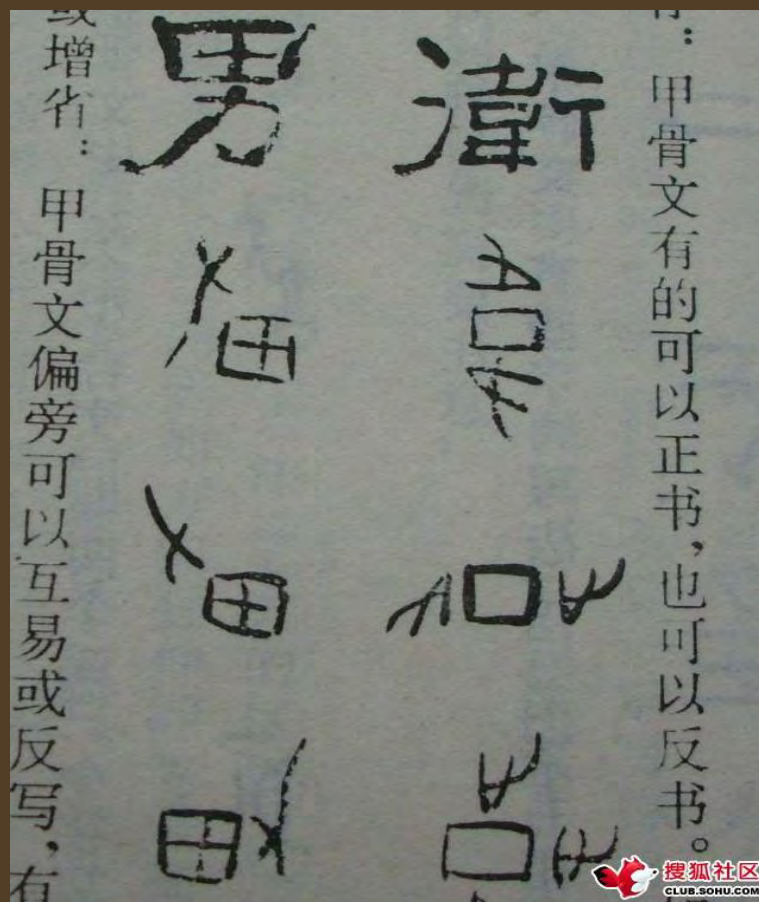 ：甲骨文有的可以正书，也可以反书。
衛
男
或增省：甲骨文偏旁可以互易或反写，有
搜狐社区
CLUB.SOHU.COM